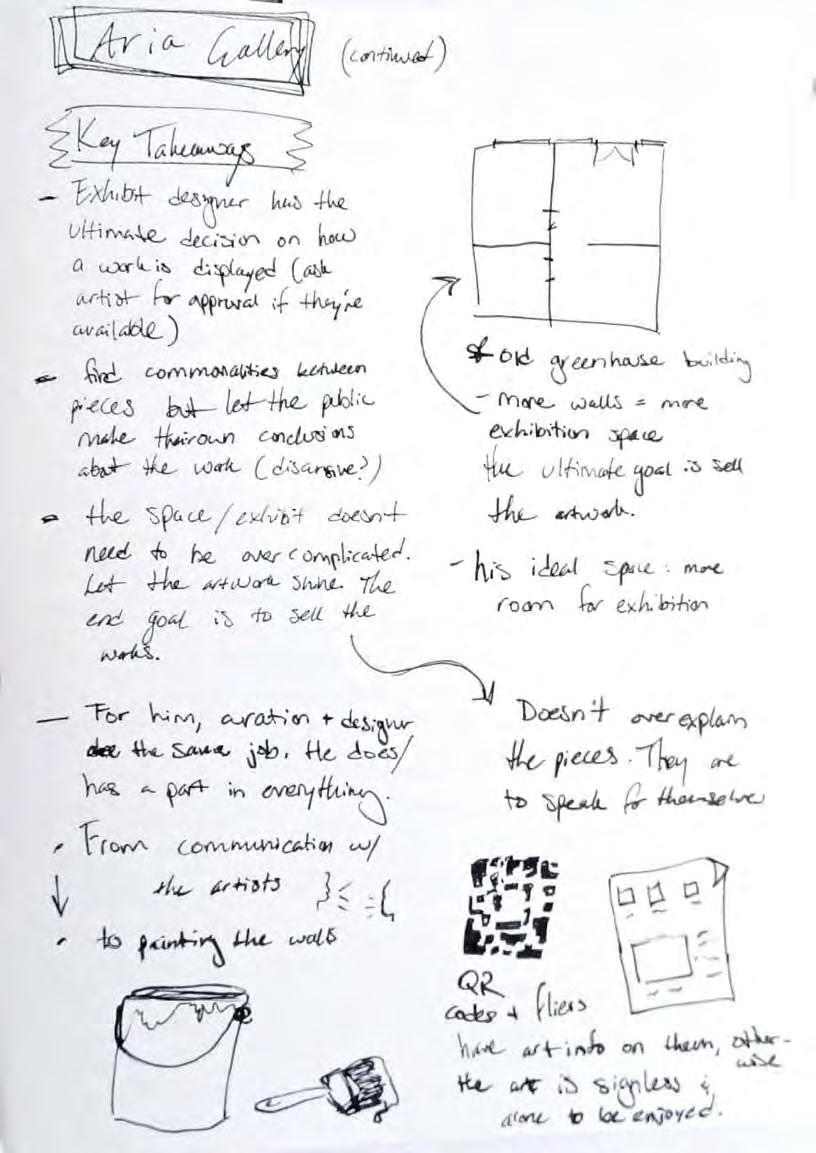 Aria Gallery (continued)
Key Takeaways
- Exhibit designer has the
ultimate decision on how
a work is displayed (ask
artist for approval if they're
available)
- find commonalities between
pieces but let the public
make their own conclusions
about the work (discursive?)
- the space/exhibit doesn't
need to be over complicated.
Let the artwork shine. The
end goal is to sell the
works.
- For him, curation + designer
are the same job. He does/
has a part in everything.
• From communication w/
the artists
• to painting the walls
* Old greenhouse building
- more walls = more
exhibition space
the ultimate goal is sell
the artwork.
- his ideal space: more
room for exhibition
Doesn't over explain
the pieces. They are
to speak for themselves
QR
codes + fliers
have art info on them, other-
wise
the art is signless &
alone to be enjoyed.